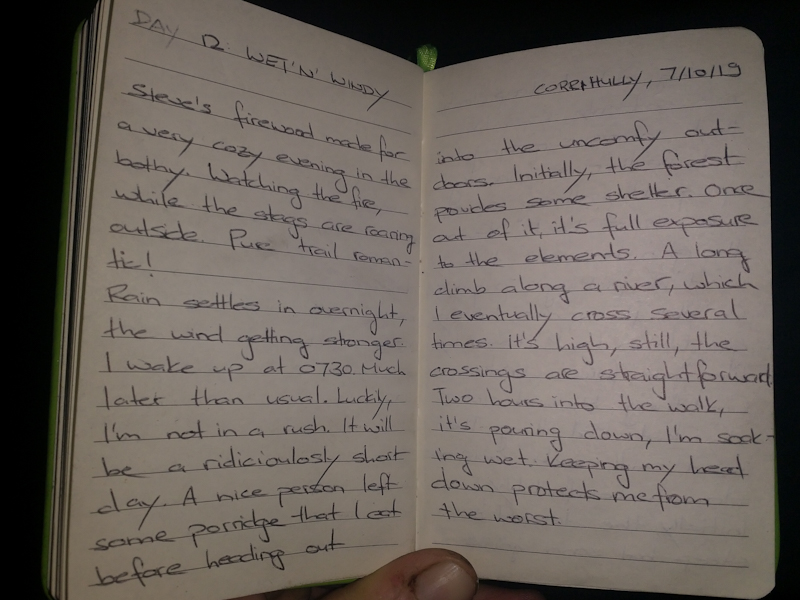 DAY 12: WET 'N' WINDY
Steve's firewood made for
a very cozy evening in the
bothy. Watching the fire,
while the stags are roaring
outside. Pure trail roman-
tic!
Rain settles in overnight,
the wind getting stronger.
I wake up at 0730. Much
later than usual. Luckily,
I'm not in a rush. It will
be a ridiciously short
day. A nice person left
some porridge that I eat
before heading out
CORRAHULLY, 7/10/19
into the uncomfy out-
doors. Initially, the forest
provides some shelter. Once
out of it, it's full exposure
to the elements. A long
climb along a river, which
I eventually cross several
times. It's high, still, the
crossings are straightforward.
Two hours into the walk,
it's pouring down, I'm soak-
ing wet. Keeping my head
down protects me from
the worst.